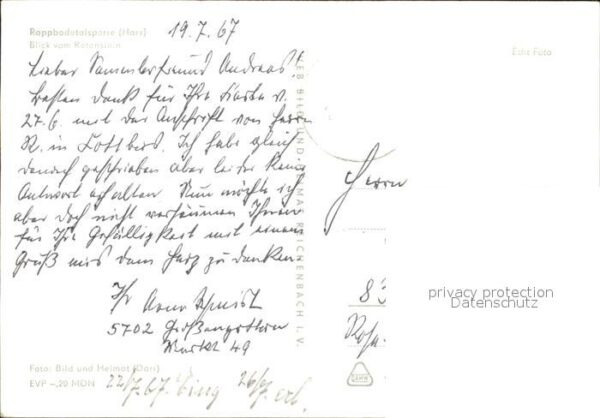 Rappbodetalsperre (Harz)
Blick vom Rotenstein
19.7.67
Echt Foto
Lieber Sammlerfreund Andreas!
Besten Dank für Ihre Karte v.
27.6. mit der Anschrift von Herrn
R. in Cottbus. Ich habe gleich
danach geschrieben aber leider keine
Antwort erhalten. Nun möchte ich
aber doch nicht versäumen Ihnen
für Ihre Gefälligkeit mit einem
Gruß aus dem Harz zu danken
Ihr Arno Schmidt
5702
Markt 49
VEB BILD UND HEIMAT REICHENBACH I. V.
Herrn
83
Rosa-
privacy protection
Datenschutz
Foto: Bild und Heimat (Dars)
EVP -,20 MDN
22/7.67. Eing 26/7 erl.